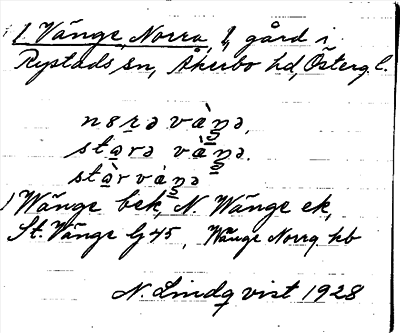 1 Vänge, Norra, 1, gård i
Rystads sn, Åkerbo hd, Österg. l.
nɷrə vàŋə,
sta̱rə vàŋə.
stàrváŋə
1) Wänge bek, N. Wänge ek,
St. Vänge G45, Wänge Norra kb
N. Lindqvist 1928